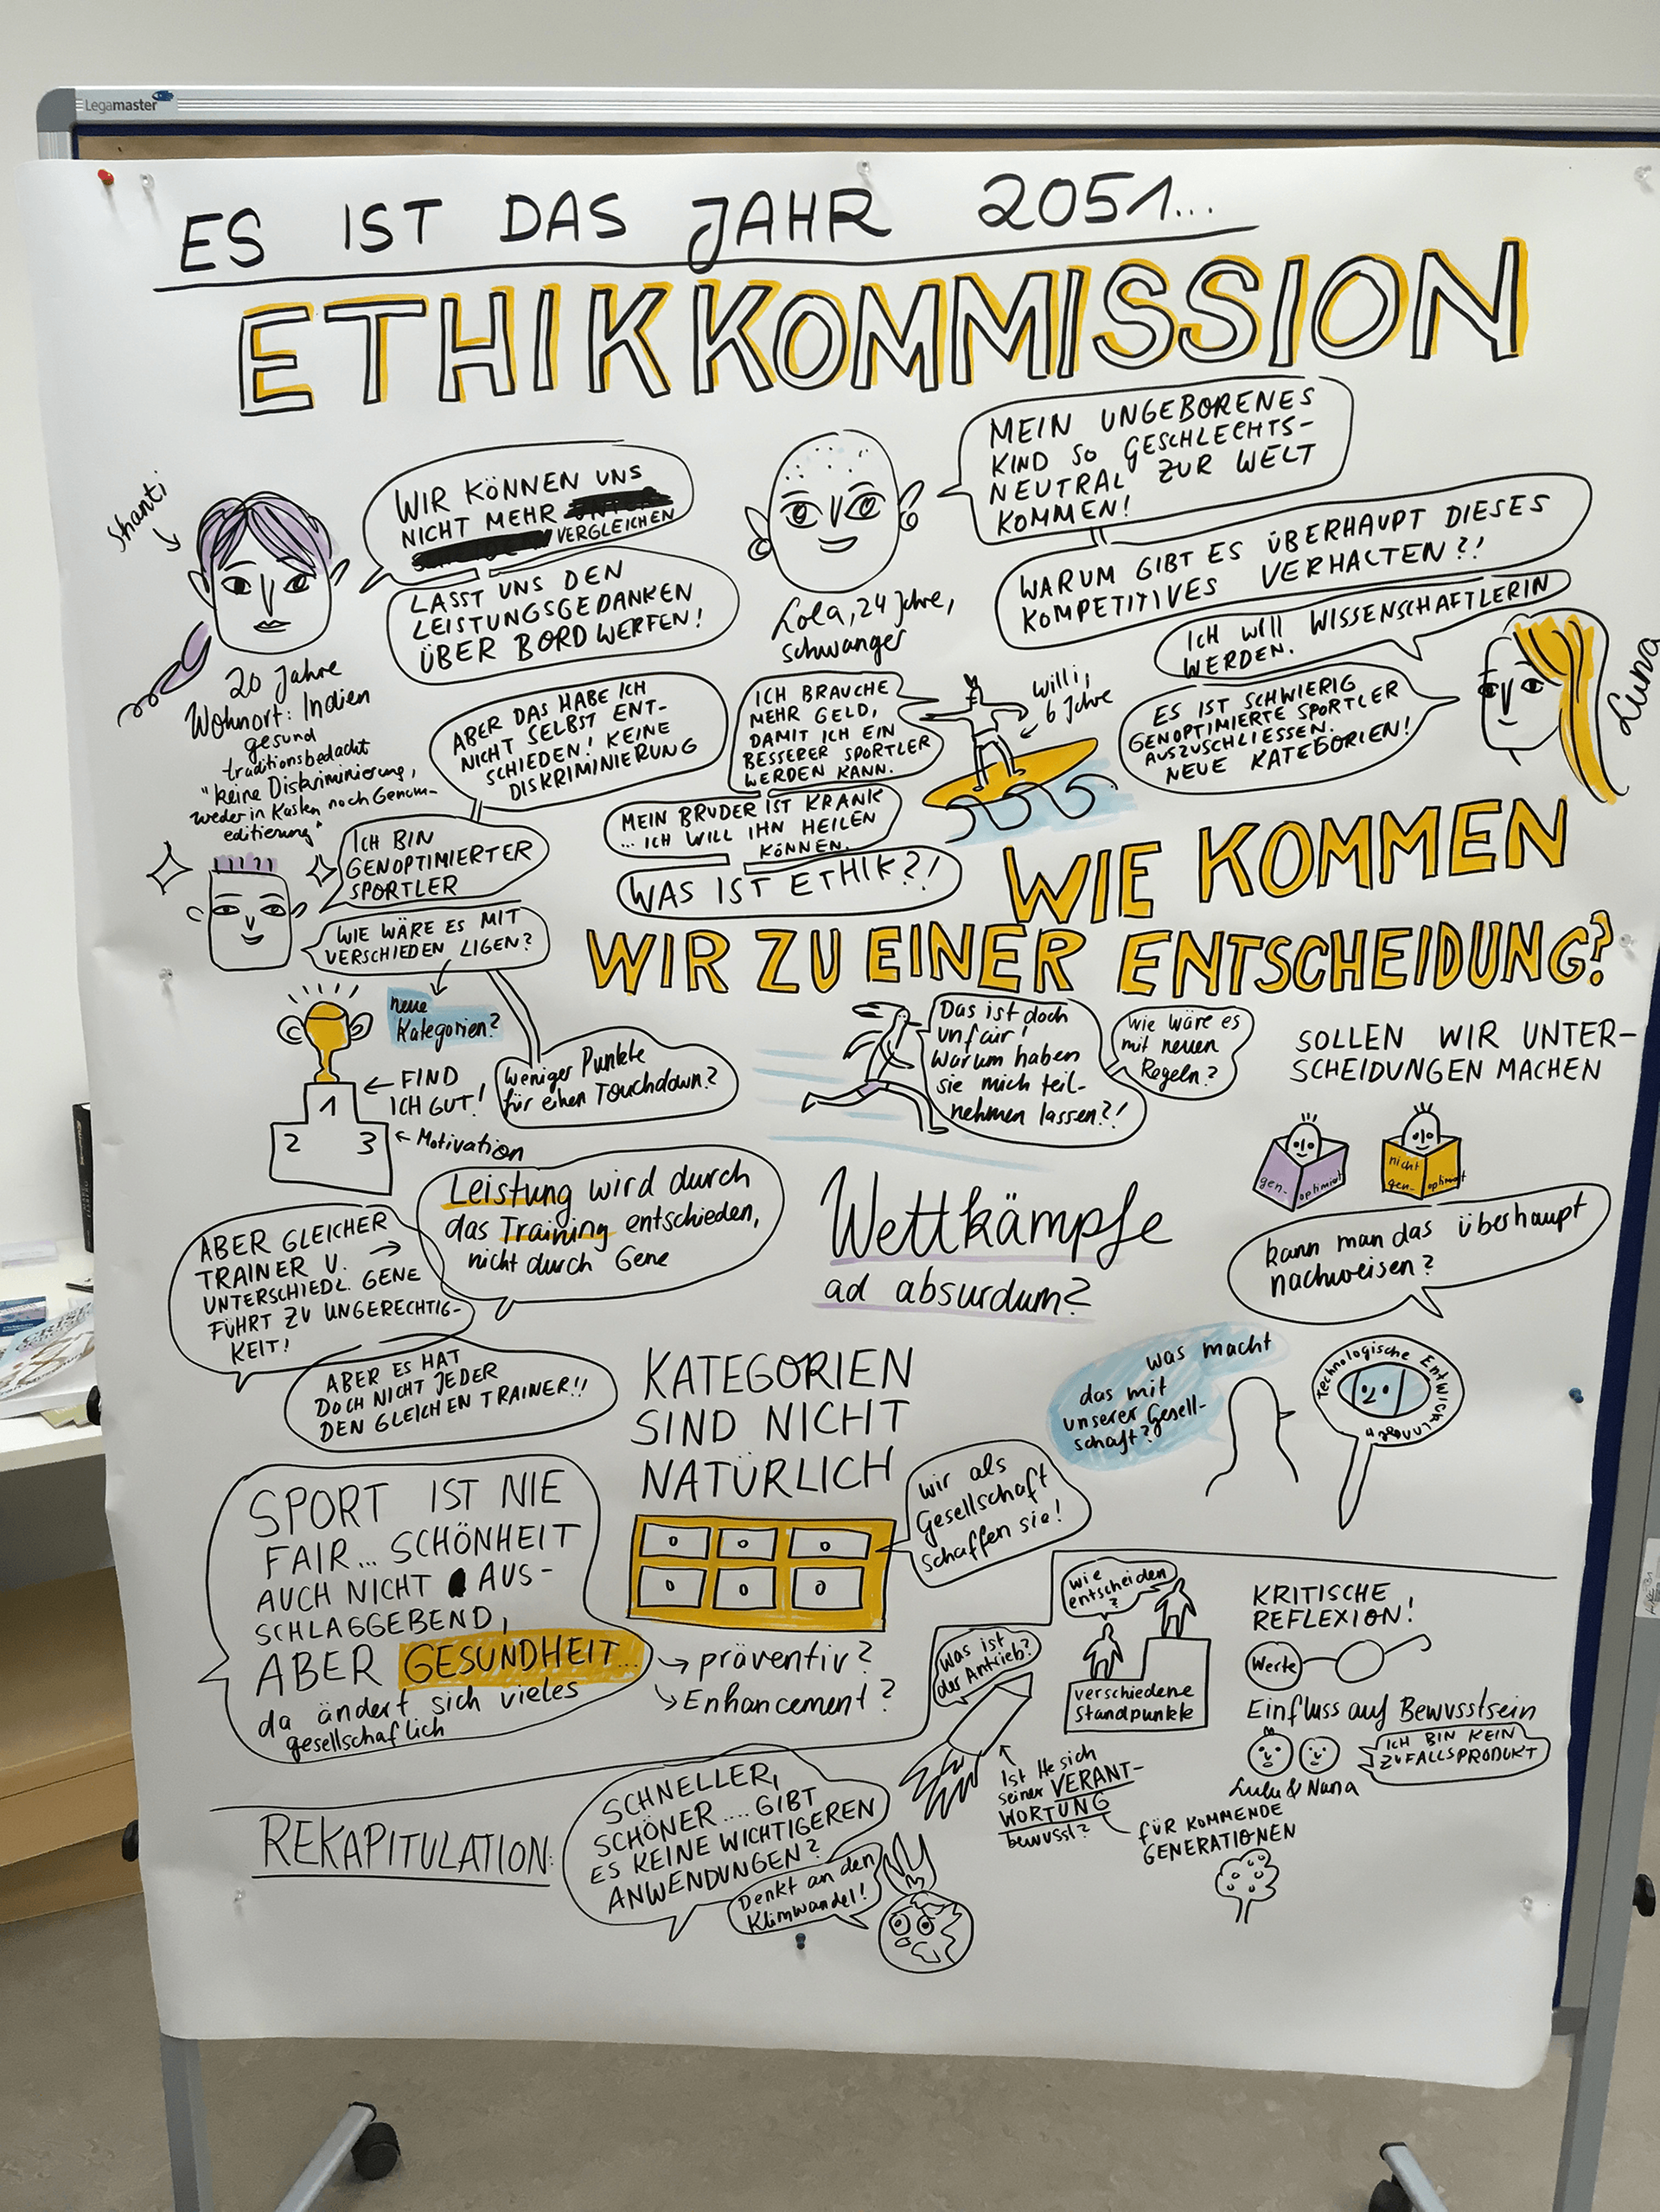 Legamaster
ES IST DAS JAHR 2051...
ETHIKKOMMISSION
Shanti
WIR KÖNNEN UNS
NICHT MEHR
VERGLEICHEN
LASST UNS DEN
LEISTUNGSGEDANKEN
ÜBER BORD WERFEN!
20 Jahre
Wohnort: Indien
gesund
traditionsbedacht
"keine Diskriminierung,
weder in Kasten noch Genom-
editierung"
Lola, 24 Jahre,
schwanger
MEIN UNGEBORENES
KIND SO GESCHLECHTS-
NEUTRAL ZUR WELT
KOMMEN!
WARUM GIBT ES ÜBERHAUPT DIESES
KOMPETITIVES VERHALTEN?!
ICH WILL WISSENSCHAFTLERIN
WERDEN.
ES IST SCHWIERIG
GENOPTIMIERTE SPORTLER
AUSZUSCHLIESSEN.
NEUE KATEGORIEN!
Luna
ABER DAS HABE ICH
NICHT SELBST ENT-
SCHIEDEN! KEINE
DISKRIMINIERUNG
ICH BIN
GENOPTIMIERTER
SPORTLER
WIE WÄRE ES MIT
VERSCHIEDEN LIGEN?
ICH BRAUCHE
MEHR GELD,
DAMIT ICH EIN
BESSERER SPORTLER
WERDEN KANN.
Willi,
6 Jahre
MEIN BRUDER IST KRANK
... ICH WILL IHN HEILEN
KÖNNEN.
WAS IST ETHIK?!
WIE KOMMEN
WIR ZU EINER ENTSCHEIDUNG?
neue
Kategorien?
weniger Punkte
für einen Touchdown?
1
2 3
← FIND
ICH GUT!
← Motivation
Das ist doch
unfair!
Warum haben
sie mich teil-
nehmen lassen?!
wie wäre es
mit neuen
Regeln?
SOLLEN WIR UNTER-
SCHEIDUNGEN MACHEN
gen- optimiert
nicht
gen- optimiert
kann man das überhaupt
nachweisen?
Leistung wird durch
das Training entschieden,
nicht durch Gene
ABER GLEICHER
TRAINER U. →
UNTERSCHIEDL. GENE
FÜHRT ZU UNGERECHTIG-
KEIT!
ABER ES HAT
DOCH NICHT JEDER
DEN GLEICHEN TRAINER!!
Wettkämpfe
ad absurdum?
was macht
das mit
unserer Gesell-
schaft?
Technologische Entwicklungen
KATEGORIEN
SIND NICHT
NATÜRLICH
wir als
Gesellschaft
schaffen sie!
SPORT IST NIE
FAIR... SCHÖNHEIT
AUCH NICHT AUS-
SCHLAGGEBEND,
ABER GESUNDHEIT...
da ändert sich vieles
gesellschaflich
→ präventiv?
→ Enhancement?
REKAPITULATION:
SCHNELLER,
SCHÖNER.... GIBT
ES KEINE WICHTIGEREN
ANWENDUNGEN?
Denkt an den
Klimwandel!
was ist
der Antrieb?
wie
entscheiden
?
verschiedene
Standpunkte
Ist He sich
seiner VERANT-
WORTUNG
bewusst?
FÜR KOMMENDE
GENERATIONEN
KRITISCHE
REFLEXION!
Werte
Einfluss auf Bewusstsein
ICH BIN KEIN
ZUFALLSPRODUKT
Lulu & Nana